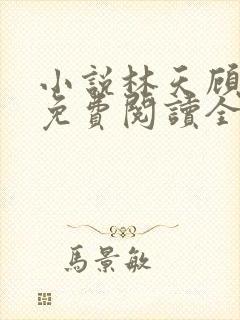 小説林天顾
免費閱讀全
馬景敏